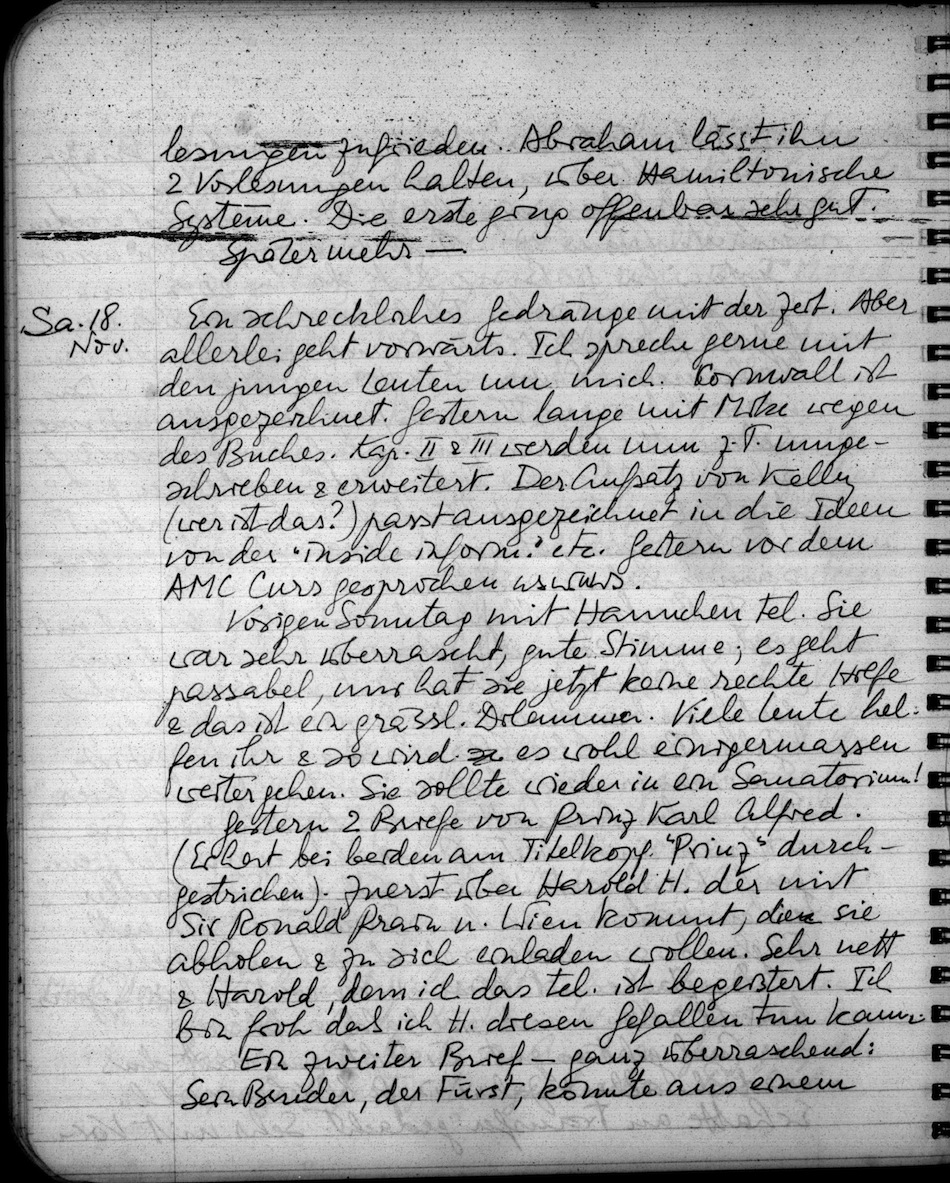 lesungen zufrieden. Abraham lässt ihn
2 Vorlesungen halten, über Hamiltonische
Systeme. Die erste ging offenbar sehr gut.
Später mehr —
Sa. 18.
Nov.
Ein schreckliches Gedränge mit der Zeit. Aber
allerlei geht vorwärts. Ich spreche gerne mit
den jungen Leuten um mich. Cornwall ist
ausgezeichnet. Gestern lange mit Mike wegen
des Buches. Kap. II & III werden nun z.T. umge-
schrieben & erweitert. Der Aufsatz von Kelly
(wer ist das?) passt ausgezeichnet in die Ideen
von der "inside inform." etc. Gestern vor dem
AMC Curs gesprochen usw.
Vorigen Sonntag mit Hannchen tel. Sie
war sehr überrascht, gute Stimme; es geht
passabel, nur hat sie jetzt keine rechte Hilfe
& das ist ein grässl. Dilemma. Viele Leute hel-
fen ihr & so wird es wohl einigermassen
weiter gehen. Sie sollte wieder in ein Sanatorium!
Gestern 2 Briefe von Prinz Karl Alfred.
(Er hat bei beiden am Titelkopf "Prinz" durch-
gestrichen). Zuerst über Harold H. der mit
Sir Ronald Prain n. Wien kommt, die sie
abholen & zu sich einladen wollen. Sehr nett
& Harold, dem ich das tel. ist begeistert. Ich
bin froh daß ich H. diesen Gefallen tun kann.
Ein zweiter Brief — ganz überraschend:
Sein Bruder, der Fürst, könnte aus einem